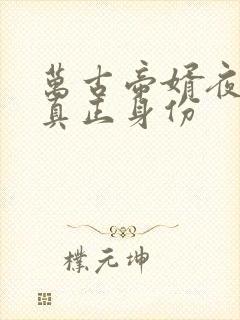 萬古帝婿夜
真正身份
樸元坤